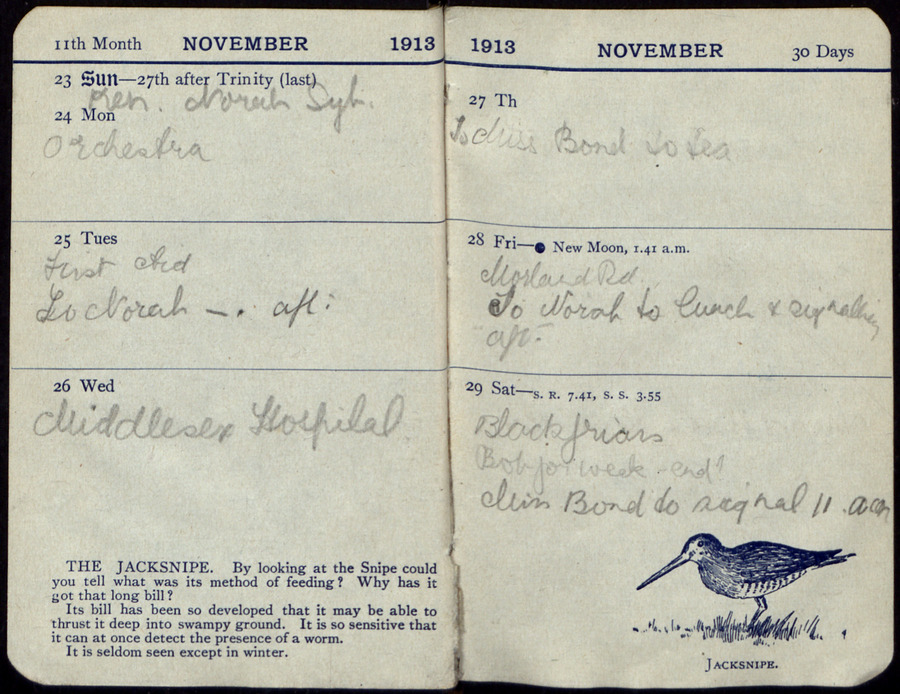 11th Month NOVEMBER 1913
23 Sun—27th after Trinity (last)
Ken. Norah Syb.
24 Mon
Orchestra
25 Tues
First Aid
To Norah —. aft:
26 Wed
Middlesex Hospital
THE JACKSNIPE. By looking at the Snipe could
you tell what was its method of feeding? Why has it
got that long bill?
Its bill has been so developed that it may be able to
thrust it deep into swampy ground. It is so sensitive that
it can at once detect the presence of a worm.
It is seldom seen except in winter.
1913 NOVEMBER 30 Days
27 Th
To Miss Bond to tea
28 Fri—● New Moon, 1.41 a.m.
Morland Rd.
To Norah to lunch & signalling
aft.
29 Sat—S. R. 7.41, S. S. 3.55
Blackfriars
Bob for week-end
Miss Bond to signal 11 a.m
JACKSNIPE.